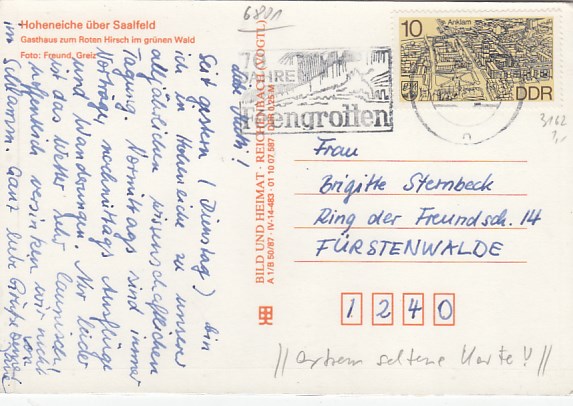 Hoheneiche über Saalfeld
Gasthaus zum Roten Hirsch im grünen Wald
Foto: Freund, Greiz
6801
75
JAHRE
Feengrotten
10
Anklam
DDR
3162
BILD UND HEIMAT · REICHENBACH (VOGTL)
A 1/B 50/87 · IV-14-483 · 01 10 07 587
Seit gestern (Dienstag) bin
ich in Hoheneiche zu unserer
alljährlichen wissenschaftlichen
Tagung. Vormittags sind immer
Vorträge, nachmittags Ausflüge
und Wanderungen. Nur leider
ist das Wetter sehr launisch!
hoffentlich versinken wir nicht
im Schlamm. Ganz liebe Grüße von
Frau
Brigitte Sternbeck
Ring der Freundsch. 14
FÜRSTENWALDE
1 2 4 0
// extrem seltene Karte! //